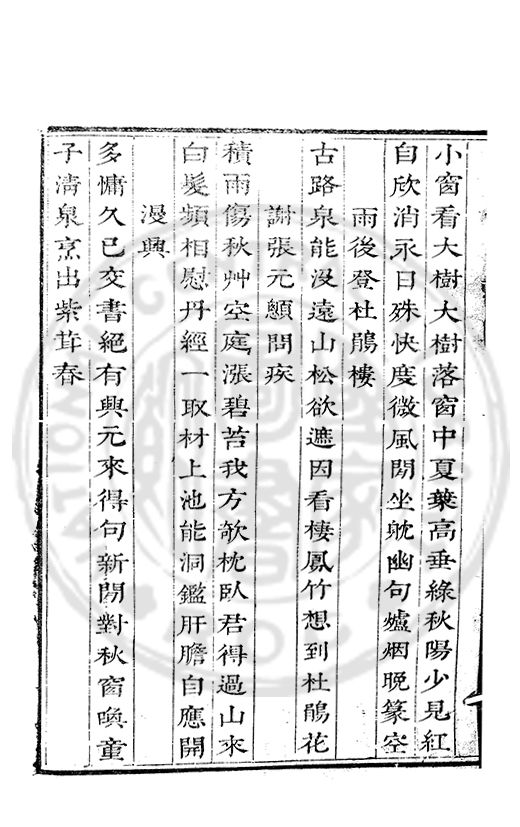 小窗看大樹大樹落窗中夏葉高垂綠秋陽少見紅
自欣消永日殊快度微風閒坐耽幽句爐烟晚篆空
雨後登杜鵑樓
古路泉能沒遠山松欲遮因看棲鳳竹想到杜鵑花
謝張元顥問疾
積雨傷秋艸空庭漲碧苔我方欹枕臥君得過山來
白髮頻相慰丹經一取材上池能洞鑑肝膽自應開
漫興
多慵久已交書絕有興元來得句新閒對秋窗喚童
子清泉烹出紫茸春